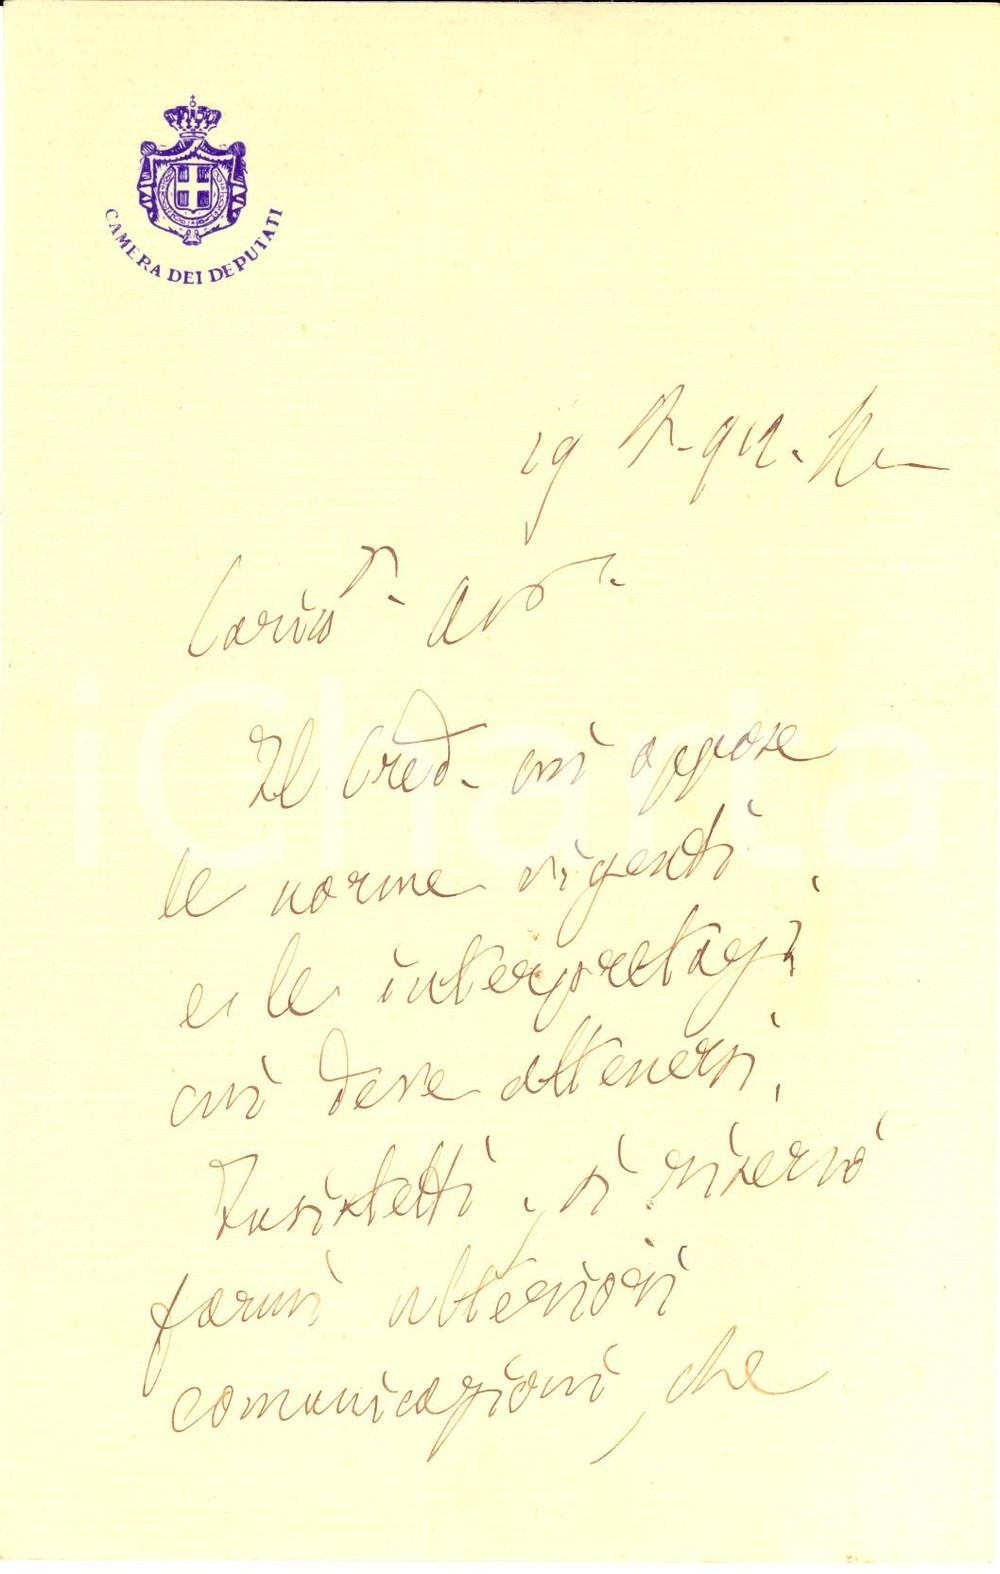 CAMERA DEI DEPUTATI
19 912.
Cariss. Avv.
Il Cred. mi oppose
le norme vigenti
e le interpretaz.i
cui deve attenersi.
Insistetti, si riservò
farmi ulteriori
comunicazioni, che
iCharta